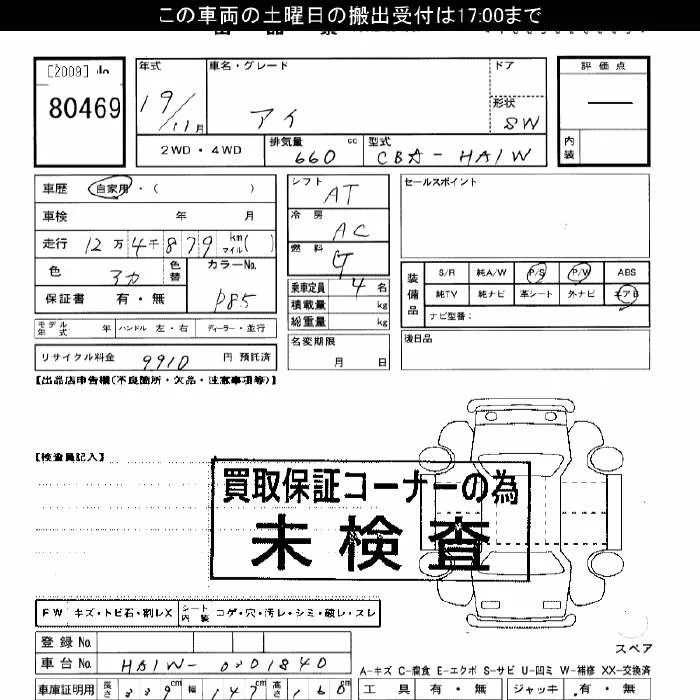 この車両の土曜日の搬出受付は17:00まで
[2009]
80469
年式
車名・グレード
ドア
評価点
19/11月
アイ
形状
SW
2WD・4WD
排気量
660
cc
型式
CBA-HA1W
内装
車歴
自家用・( )
シフト
AT
セールスポイント
車検 年 月
冷房
AC
走行 12万4千879 km マイル( )
燃料
G
色
アカ
色替
カラーNo.
P85
装備品
S/R 純A/W P/S P/W ABS
保証書 有・無
乗車定員 4 名
純TV 純ナビ 革シート 外ナビ エアB
積載量 kg
ナビ型番:
モデル年式 年 ハンドル 左・右 ディーラー・並行
総重量 kg
リサイクル料金 9910 円 預託済
名変期限
月 日
後日品
【出品店申告欄(不良箇所・欠品・注意事項等)】
【検査員記入】
買取保証コーナーの為
未検査
FW キズ・トビ石・割レX
シート内装 コゲ・穴・汚レ・シミ・破レ・スレ
登録No.
スペア
車台No. HA1W-0301840
A-キズ C-腐食 E-エクボ S-サビ U-凹ミ W-補修 XX-交換済
車庫証明用 長さ 339 cm 幅 147 cm 高さ 160 cm
工具 有・無 ジャッキ 有・無